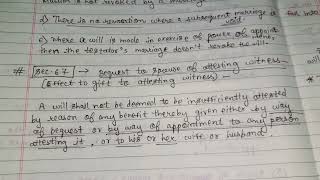 d) There is no revocation where a subsequent marriage is void.
e) Where a will is made in exercise of power of appoint
then the testator's marriage doesn't revoke the will.
# Sec 67 → Bequest to spouse of attesting witness
(Effect to gift to attesting witness)
A will shall not be deemed to be insufficiently attested
by reason of any benefit thereby given either by way
of bequest or by way of appointment to any person
attesting it, or to his or her wife or husband.